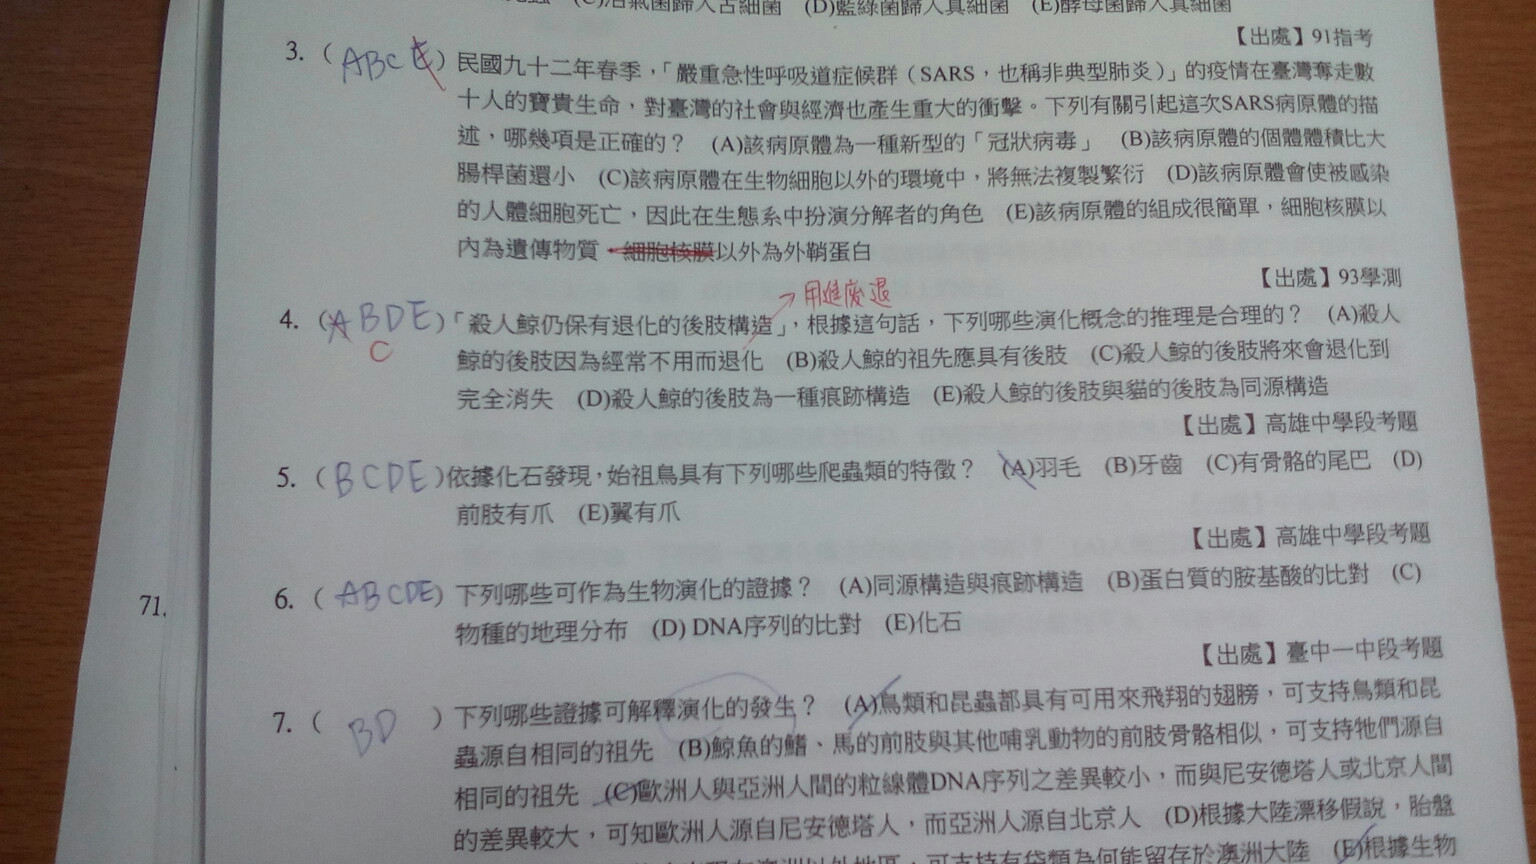 (C)沼氣菌歸入古細菌　(D)藍綠菌歸入真細菌　(E)酵母菌歸入真細菌
【出處】91指考
3.（ABCE）民國九十二年春季，「嚴重急性呼吸道症候群（SARS，也稱非典型肺炎）」的疫情在臺灣奪走數
十人的寶貴生命，對臺灣的社會與經濟也產生重大的衝擊。下列有關引起這次SARS病原體的描
述，哪幾項是正確的？　(A)該病原體為一種新型的「冠狀病毒」　(B)該病原體的個體體積比大
腸桿菌還小　(C)該病原體在生物細胞以外的環境中，將無法複製繁衍　(D)該病原體會使被感染
的人體細胞死亡，因此在生態系中扮演分解者的角色　(E)該病原體的組成很簡單，細胞核膜以
內為遺傳物質，細胞核膜以外為外鞘蛋白
【出處】93學測
→用進廢退
4.（ABDE）「殺人鯨仍保有退化的後肢構造」，根據這句話，下列哪些演化概念的推理是合理的？　(A)殺人
C
鯨的後肢因為經常不用而退化　(B)殺人鯨的祖先應具有後肢　(C)殺人鯨的後肢將來會退化到
完全消失　(D)殺人鯨的後肢為一種痕跡構造　(E)殺人鯨的後肢與貓的後肢為同源構造
【出處】高雄中學段考題
5.（BCDE）依據化石發現，始祖鳥具有下列哪些爬蟲類的特徵？　(A)羽毛　(B)牙齒　(C)有骨骼的尾巴　(D)
前肢有爪　(E)翼有爪
【出處】高雄中學段考題
6.（ABCDE）下列哪些可作為生物演化的證據？　(A)同源構造與痕跡構造　(B)蛋白質的胺基酸的比對　(C)
71.
物種的地理分布　(D) DNA序列的比對　(E)化石
【出處】臺中一中段考題
7.（BD）下列哪些證據可解釋演化的發生？　(A)鳥類和昆蟲都具有可用來飛翔的翅膀，可支持鳥類和昆
蟲源自相同的祖先　(B)鯨魚的鰭、馬的前肢與其他哺乳動物的前肢骨骼相似，可支持牠們源自
相同的祖先　(C)歐洲人與亞洲人間的粒線體DNA序列之差異較小，而與尼安德塔人或北京人間
的差異較大，可知歐洲人源自尼安德塔人，而亞洲人源自北京人　(D)根據大陸漂移假說，胎盤
以外地區，可支持有袋類為何能留存於澳洲大陸　(E)根據生物